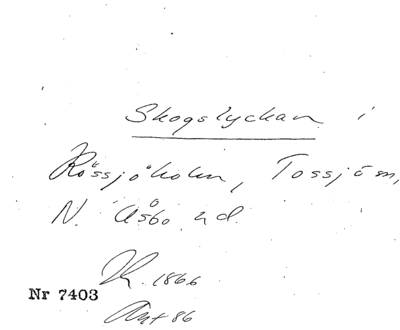 Skogslyckan i
Rössjöholm, Tossjöm,
N. Åsbo hd.
K. 1866
Nr 7403
Akt 86